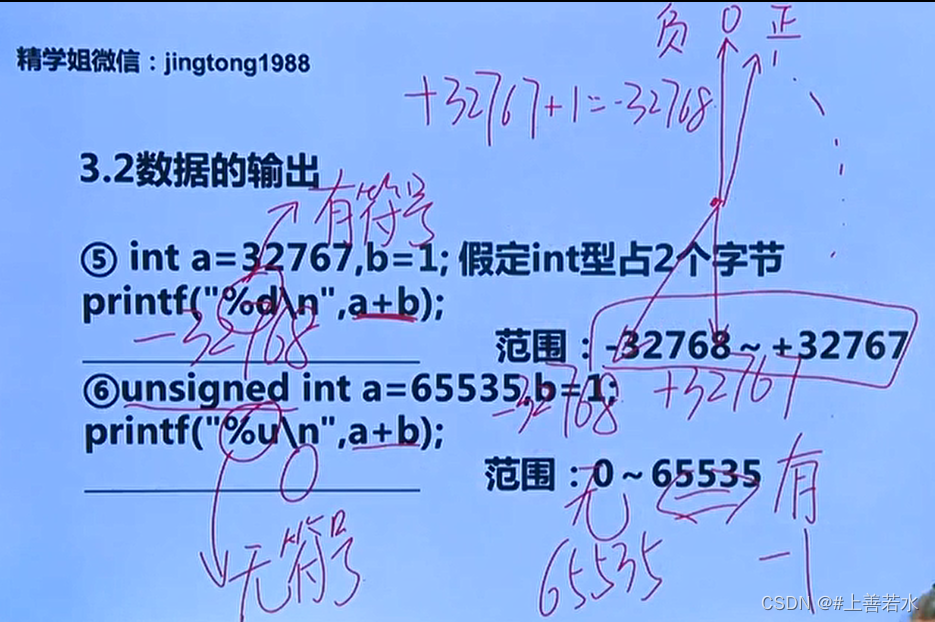 负 0 正
精学姐微信：jingtong1988
+32767+1=-32768
3.2数据的输出
有符号
⑤ int a=32767,b=1; 假定int型占2个字节
printf("%d\n",a+b);
-32768
范围：-32768～+32767
-32768 +32767
⑥unsigned int a=65535,b=1;
printf("%u\n",a+b);
0
范围：0～65535
无 有
无符号
65535 -1
CSDN @#上善若水